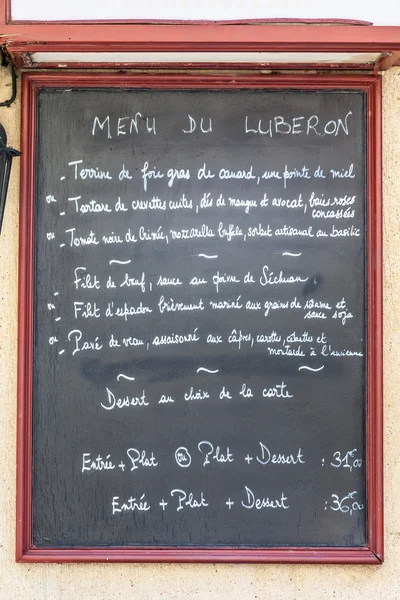 MENU DU LUBERON
- Terrine de foie gras de canard, une pointe de miel
ou
- Tartare de crevettes cuites, dés de mangue et avocat, baies roses
concassées
ou
- Tomate noire de Crimée, mozzarella bufala, sorbet artisanal au basilic
~ ~ ~
- Filet de bœuf, sauce au poivre de Séchuan.
ou
- Filet d'espadon brièvement mariné aux grains de sésame et
sauce soja
ou
- Pavé de veau, assaisonné aux câpres, carottes, cébettes et
moutarde à l'ancienne
~ ~ ~
Dessert au choix de la carte
Entrée + Plat ou Plat + Dessert : 31,00€
Entrée + Plat + Dessert : 36,00€